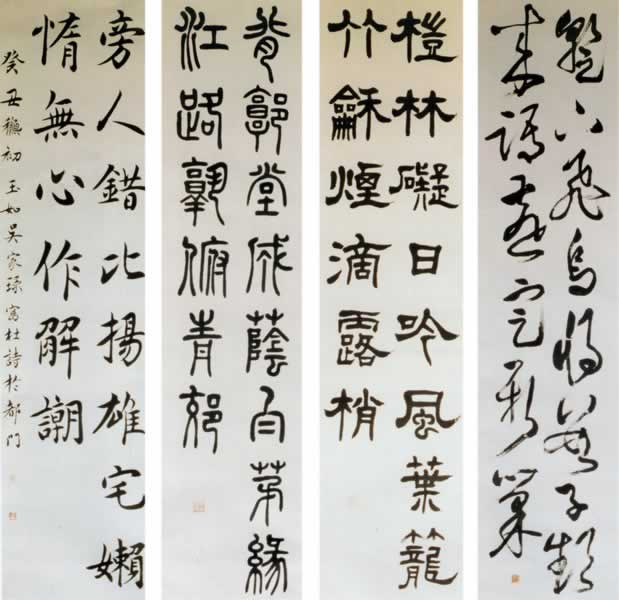 暫下飛烏將數子頻
來語燕定新巢
榿林礙日吟風葉籠
竹龢煙滴露梢
背郭堂成蔭白茅緣
江路孰俯青郊
旁人錯比揚雄宅嬾
惰無心作解謿
癸丑龝初玉如吳家琭寫杜詩於都門